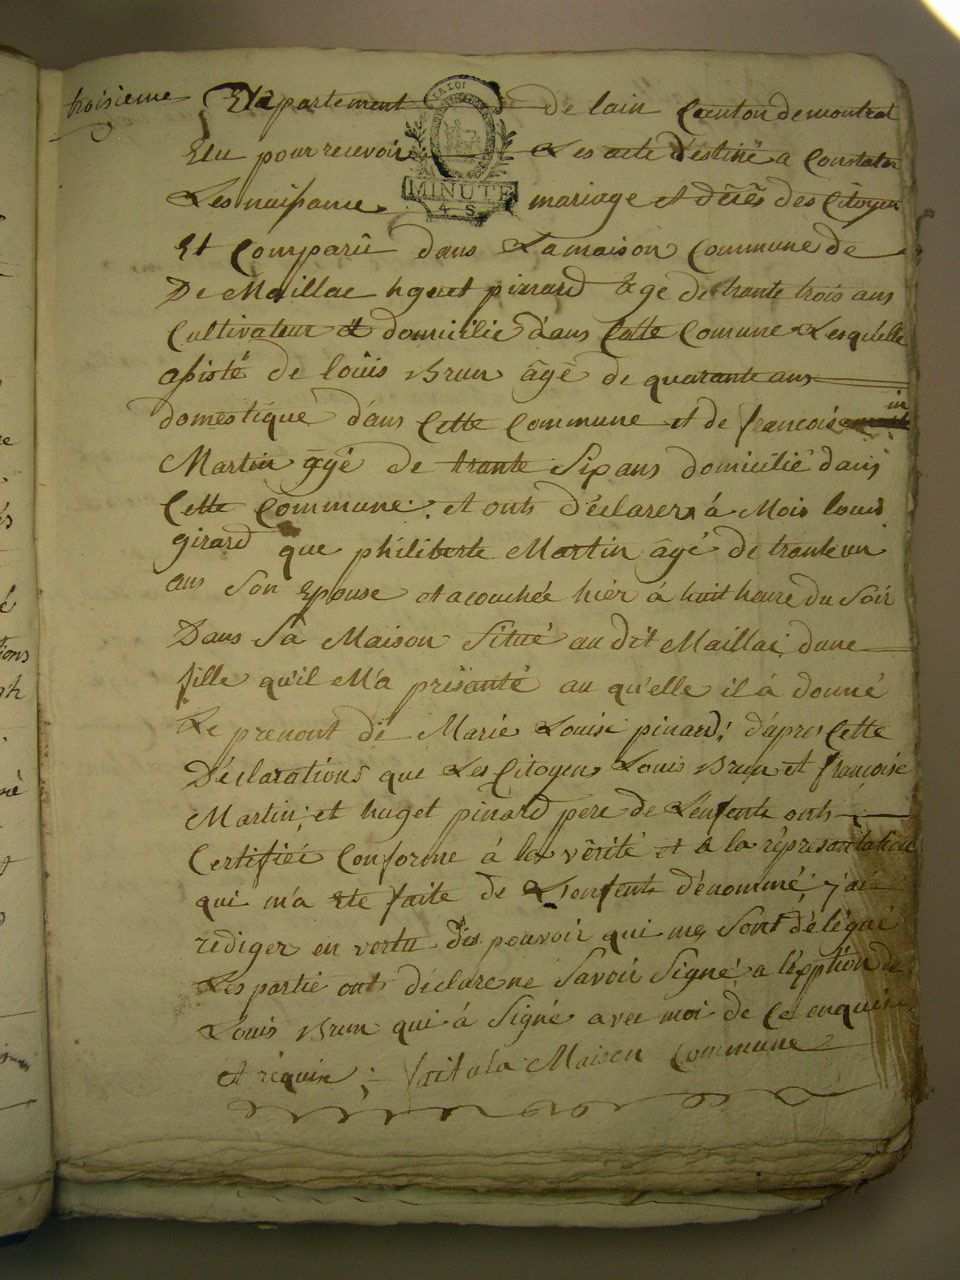 troisieme
Departement de lain Canton de montreal
Elu pour recevoir Les acte destiné a Constater
LA LOI
MINUTE
4. S.
Les naissance mariage et décés des Citoyen
Et Comparû dans La maison Commune de
De Maillac huguet pinard âge de trante trois ans
Cultivateur et domicilié dans Cette Comune Lesquelle
assisté de loûis Brun âgé de quarante ans
domestique dans Cette Commune et de francoise
in
Martin âgé de trante six ans domicilié dans
Cette Commune. et onts déclarer à Mois louis
girard que philiberte Martin âgé de trante un
ans Son Epouse et acouchée hiér à huit heure du Soir
Dans Sa Maison Situé au dit Maillac dune
fille qu'il M'a présanté au qu'elle il à donné
Le prenont de Marie Louise pinard; d'apres Cette
Déclarations que Les Citoyens Louis Brun et francoise
Martin; et huget pinard pere de L'enfents onts
Certifiéé Conforme à la vérité et a la réprésantation
qui m'a eté faite de L'enfents dénommé; j'ai
rédiger en vertu des pouvoir qui me Sont délégué
Les partie onts déclare ne Savoir Signé a l'éxption de
Louis Brun qui à Signé avec moi de Ce enquis
et réquise; fait a la Maison Commune